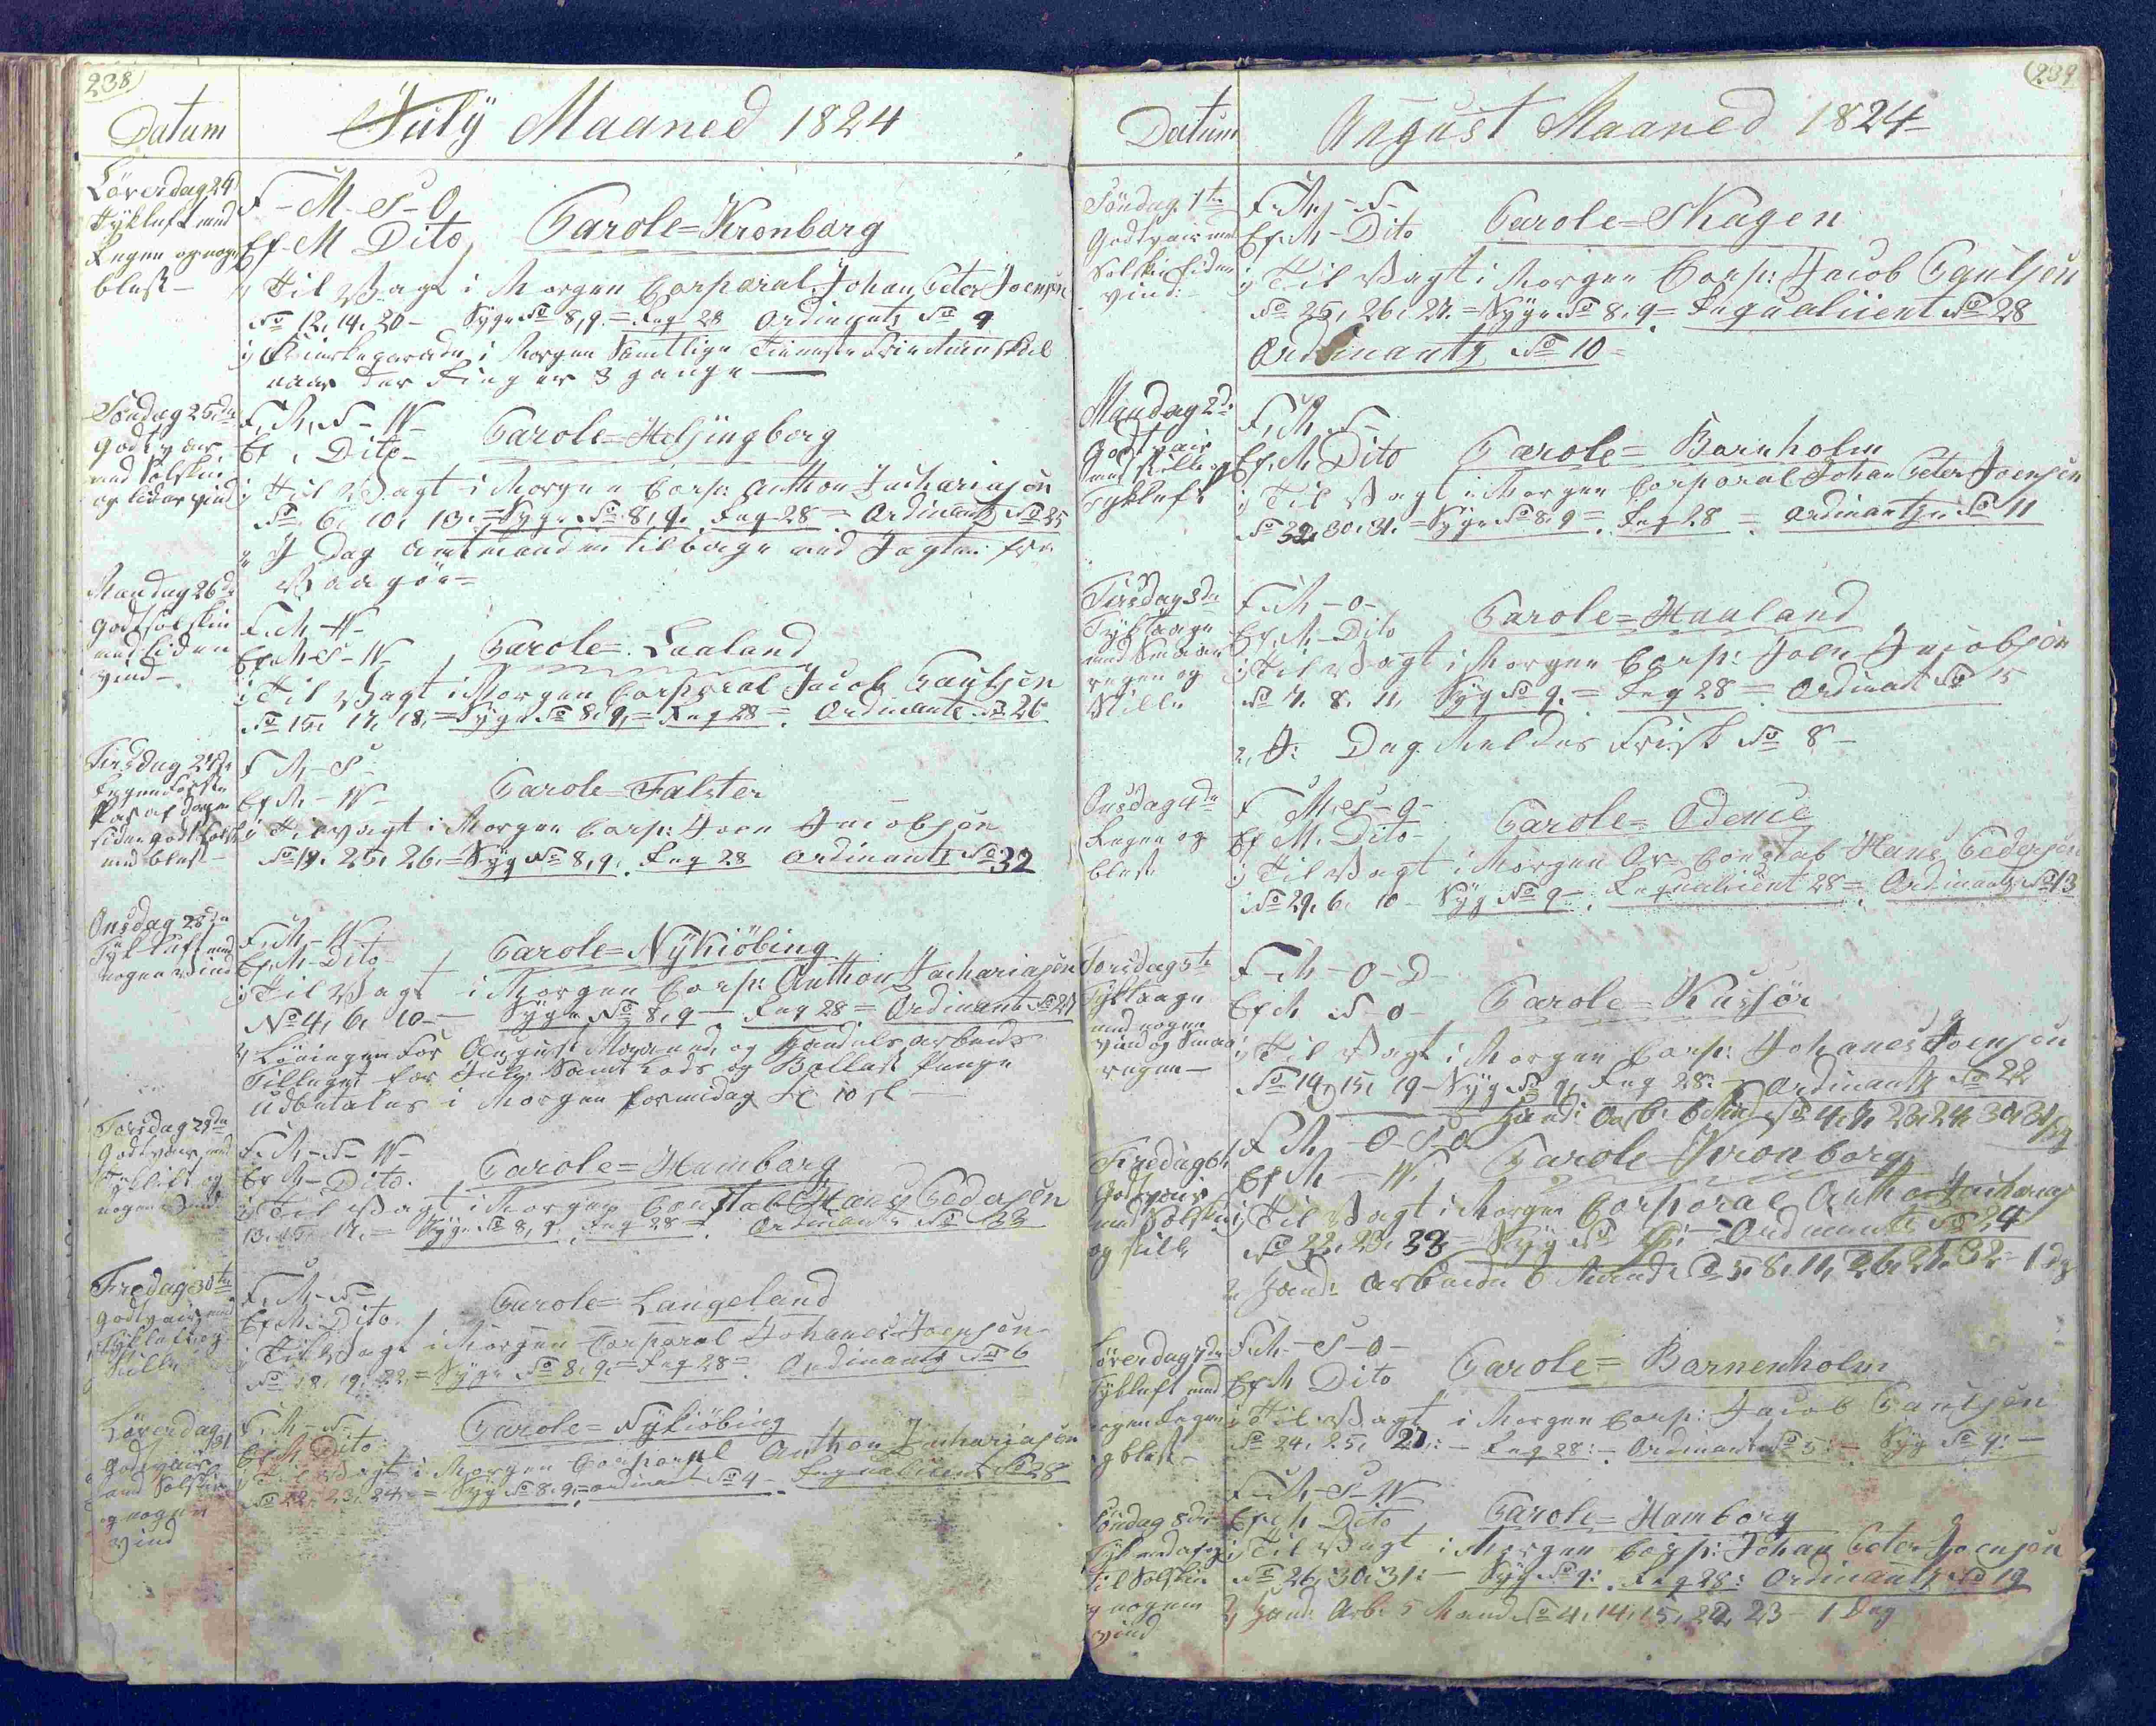 238
Datum
July Maaned 1824
Löverdag 24
Tykluft med
Regen og nogen
blæst -
F - M - S - O
Ef - M Dito Parole = Kronborg
1, Til Vagt i Morgen Corporal Johan Peter Joensen
No 12, 14, 20 - Syge No 8, 9. = Reg 28 Ordinantz No 9
naar der Ringer 3 gange
Söndag 25de
Godt vær
med Solskin
og liden vind
F. M. S - W -
Ef. Dito - Parole = Helsingborg
1, Til Vagt i Morgen Corp: Anthon Zachariasön
No 6, 10, 13. = Syge No 8, 9. Reg 28 = Ordinantz No 25
2, I Dag Amtmanden tilbage med Jagten fra
Vaagöe =
Mandag 26de
Godt solskin
med liden
vind -
F. M - W -
Ef. M - S - W - Parole = Laaland
1, Til Vagt i Morgen Corporal Jacob Paulsen
No 15, 17, 18, = Syge No 8, 9, = Reg 28 = Ordinants No 26
Tirsdag 27de
Regen første
Part af dagen
siden godt solsk
med blæst -
F M, - S -
Ef M - W - Parole = Falster
1, Til Vagt i Morgen Corp: Joen Jacobsön
No 19, 25, 26. = Syg No 8, 9. Reg 28 Ordinants No 32
Onsdag 28de
Tyk luft med
nogen Vind
F. M, - W -
Ef. M - Dito - Parole = Nykiöbing
1, Til Vagt i Morgen Corp: Anthon Zachariasön
No 4, 6, 10 - Syge No 8, 9 - Reg 28 = Ordinants No 27
2, Löningen for August Maaned, og Handels arbeids
Tillæget for July Samt Lods og Ballast Penge
Udbetales i Morgen formidag Kl 10 sl -
Torsdag 29de
Godt vær med
Tykluft og
nogen Vind
F. M, - S - W -
Ef M - Dito. Parole = Hamborg
1, Til Vagt i Morgen Constabel Hans Pedersen
13, 15, 17, = Syge No 8, 9, Reg 28 = Ordinants No 33
Fredag 30te
Godt vair med
Tykluft og
Stille
F. M - S =
Ef. M. Dito. Parole = Langeland
1, Til Vagt i Morgen Corporal Johanes Joensen
No 18, 19, 22, = Syge No 8, 9. = Reg 28 = Ordinants No 6
Löverdag
31
Godt vair
med Solskin
og nogen
vind
F. M - S -
Ef M Dito Parole = Nykiöbing
1, Til Vagt i Morgen Corporal Anthon Zachariasön
No 22, 23, 24, = Syg No 8, 9, = ordinant No 4 - Reqvalicent No 28
239
Datum
August Maaned 1824 -
Söndag 1te
Godt vair med
Solskin liden
vind:
F. M, - S -
Ef. M - Dito Parole = Skagen
1, Til Vagt i Morgen Corp: Jacob Paulsen
No 25, 26, 27. = Syge No 8, 9 = Reqvalicient No 28
Ordinants No 10 =
Mandag 2de
Godt vair
med stille og
Tykluft
F, M, S -
Ef. M Dito Parole = Barnholm
1, Til Vagt i Morgen Corporal Johan Peter Joensen
No 29, 30, 31. = Syge No 8, 9 = Reg 28 = Ordinantzen No 11
Tirsdag 3de
Tyktaage
med Smaa
regen og
Stille
F. M - O -
Ef. M. - Dito Parole = Haaland
1, Til Vagt i Morgen Corp: Joen Jacobsön
No 7, 8, 11, Syg No 9. = Reg 28 = Ordinant No 5
2, I Dag Meldes Frisk No 8 -
Onsdag 4de
Regen og
blæst
F M, S - O -
Ef M. Dito - Parole = Odence
1, Til Vagt i Morgen Constab Hans Pedersen
No 29, 6, 10 - Syg No 9 - Reqvalicient 28 = Ordinants No 13
Torsdag 5te
Tyktaage
med nogen
vind og Smaa
regen -
F - M - O - D -
Ef M S - O - Parole = Kussör
1, Til Vagt i Morgen Corp: Johanes Joensen
No 14, 15, 19 - Syg No 9, Reg 28: - Ordinants No 22
Hand: Arb: 6 Mand No 4, 7, 23, 24, 30, 31
Fredag 6te
Godt vair
med Solskin
og stille
F M, - O - S O
Ef M - W. Parole = Kronborg
1, Til Vagt i Morgen Corporal Anthon Zacharias
No 22, 23, 33 - Syg No 9: - Ordinants No 24
2, Hand: Arbeide 6 Mand: No 5, 8, 11, 26, 27, 32 - 1 Dg
Löverdag 7de
Tykluft med
nogen Regen
og blæst -
F. M - S - O -
Ef M Dito Parole = Barnenholm
1, Til Vagt i Morgen Corp: Jacob Paulsen
No 24, 25, 27: - Reg 28: - Ordinants No 5: - Syg No 9: -
Söndag 8de
og nogen
vind
F. M - S - W
Ef. M Dito Parole = Hamborg
1, Til Vagt i Morgen Corp: Johan Peter Joensen
No 26, 30, 31: - Syg No 9: . Reg 28: Ordinants No 19
2, Hand: Arb: 5 Mand No 4, 14, 15, 22, 23 - 1 Dag